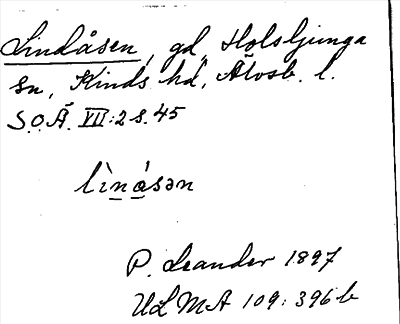 Lindåsen, gd, Holsljunga
sn, Kinds hd, Älvsb. l.
S.O.Ä. VII:2 s. 45
lìnásən
P. Leander 1897
ULMA 109:396 b